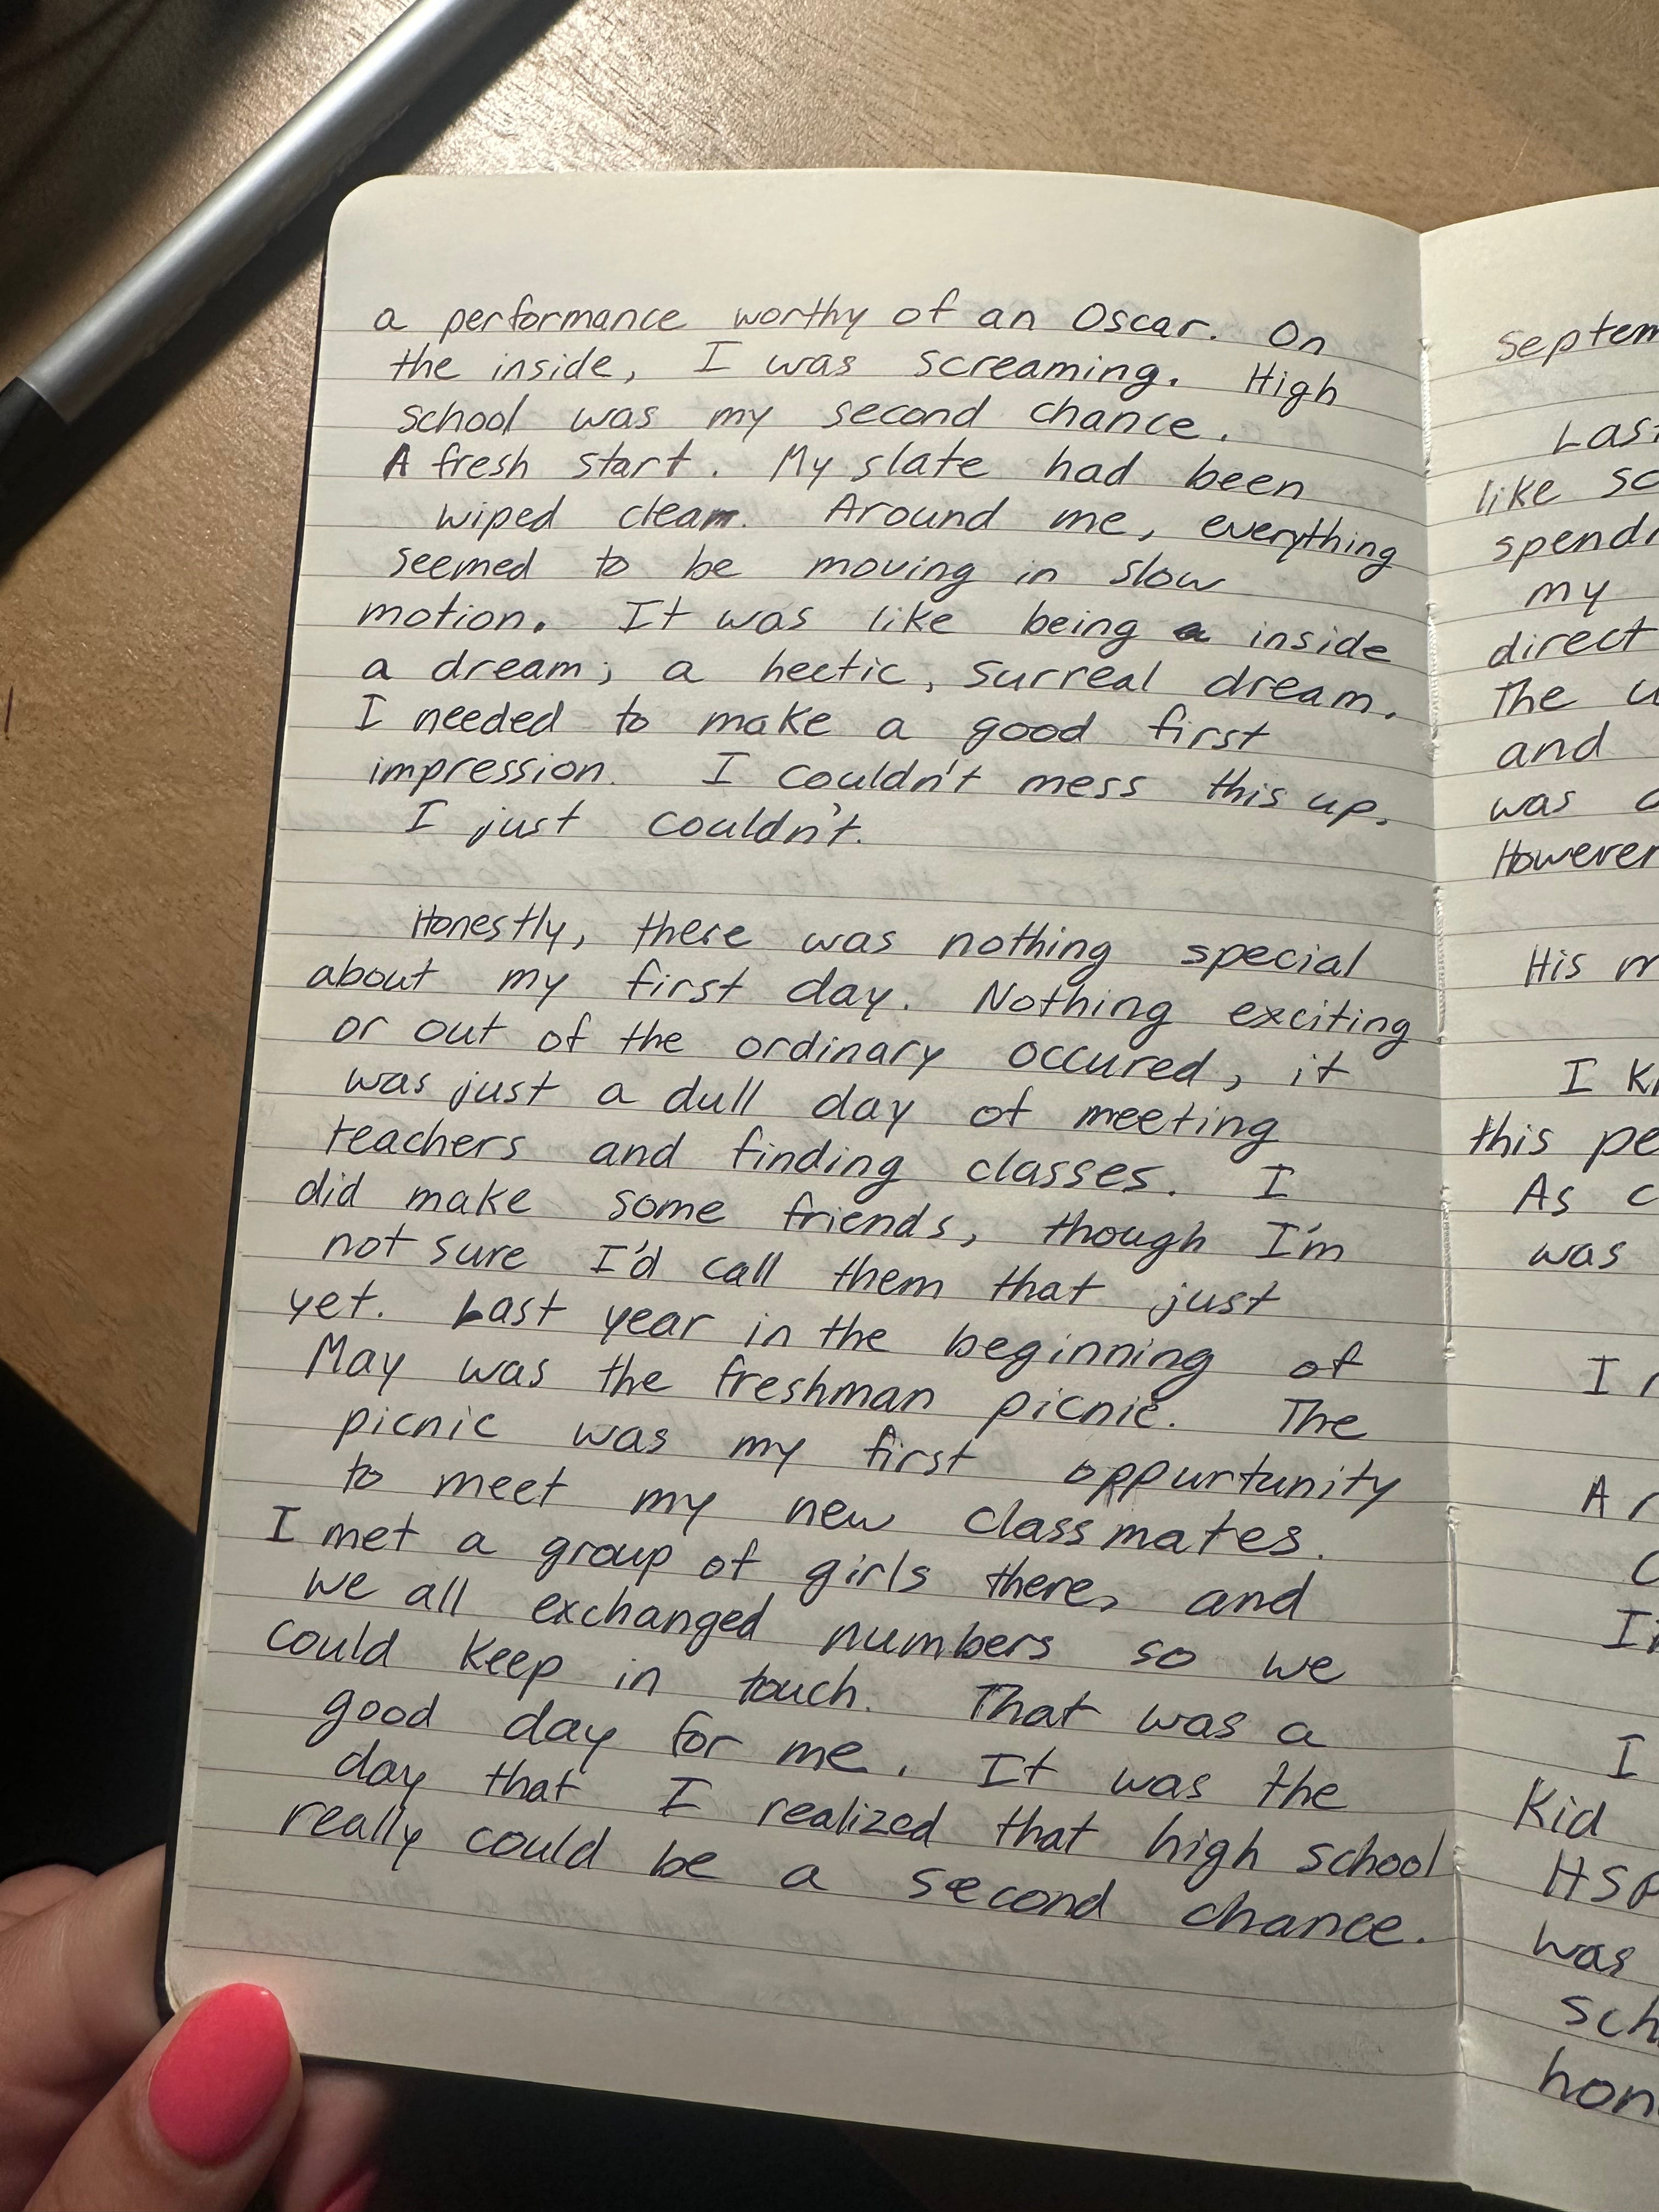 a performance worthy of an Oscar. On
the inside, I was screaming. High
school was my second chance.
A fresh start. My slate had been
wiped clean. Around me, everything
seemed to be moving in slow
motion. It was like being a inside
a dream; a hectic, surreal dream.
I needed to make a good first
impression. I couldn't mess this up.
I just couldn't.
Honestly, there was nothing special
about my first day. Nothing exciting
or out of the ordinary occured, it
was just a dull day of meeting
teachers and finding classes. I
did make some friends, though I'm
not sure I'd call them that just
yet. Last year in the beginning of
May was the freshman picnic. The
picnic was my first oppurtunity
to meet my new classmates.
I met a group of girls there, and
we all exchanged numbers so we
could keep in touch. That was a
good day for me. It was the
day that I realized that high school
really could be a second chance.
Septem
Last
like so
spendi
my
direct
The
and
was
However
His
I
this pe
As
was
I
A
I
Kid
HSP
was
sch
hon